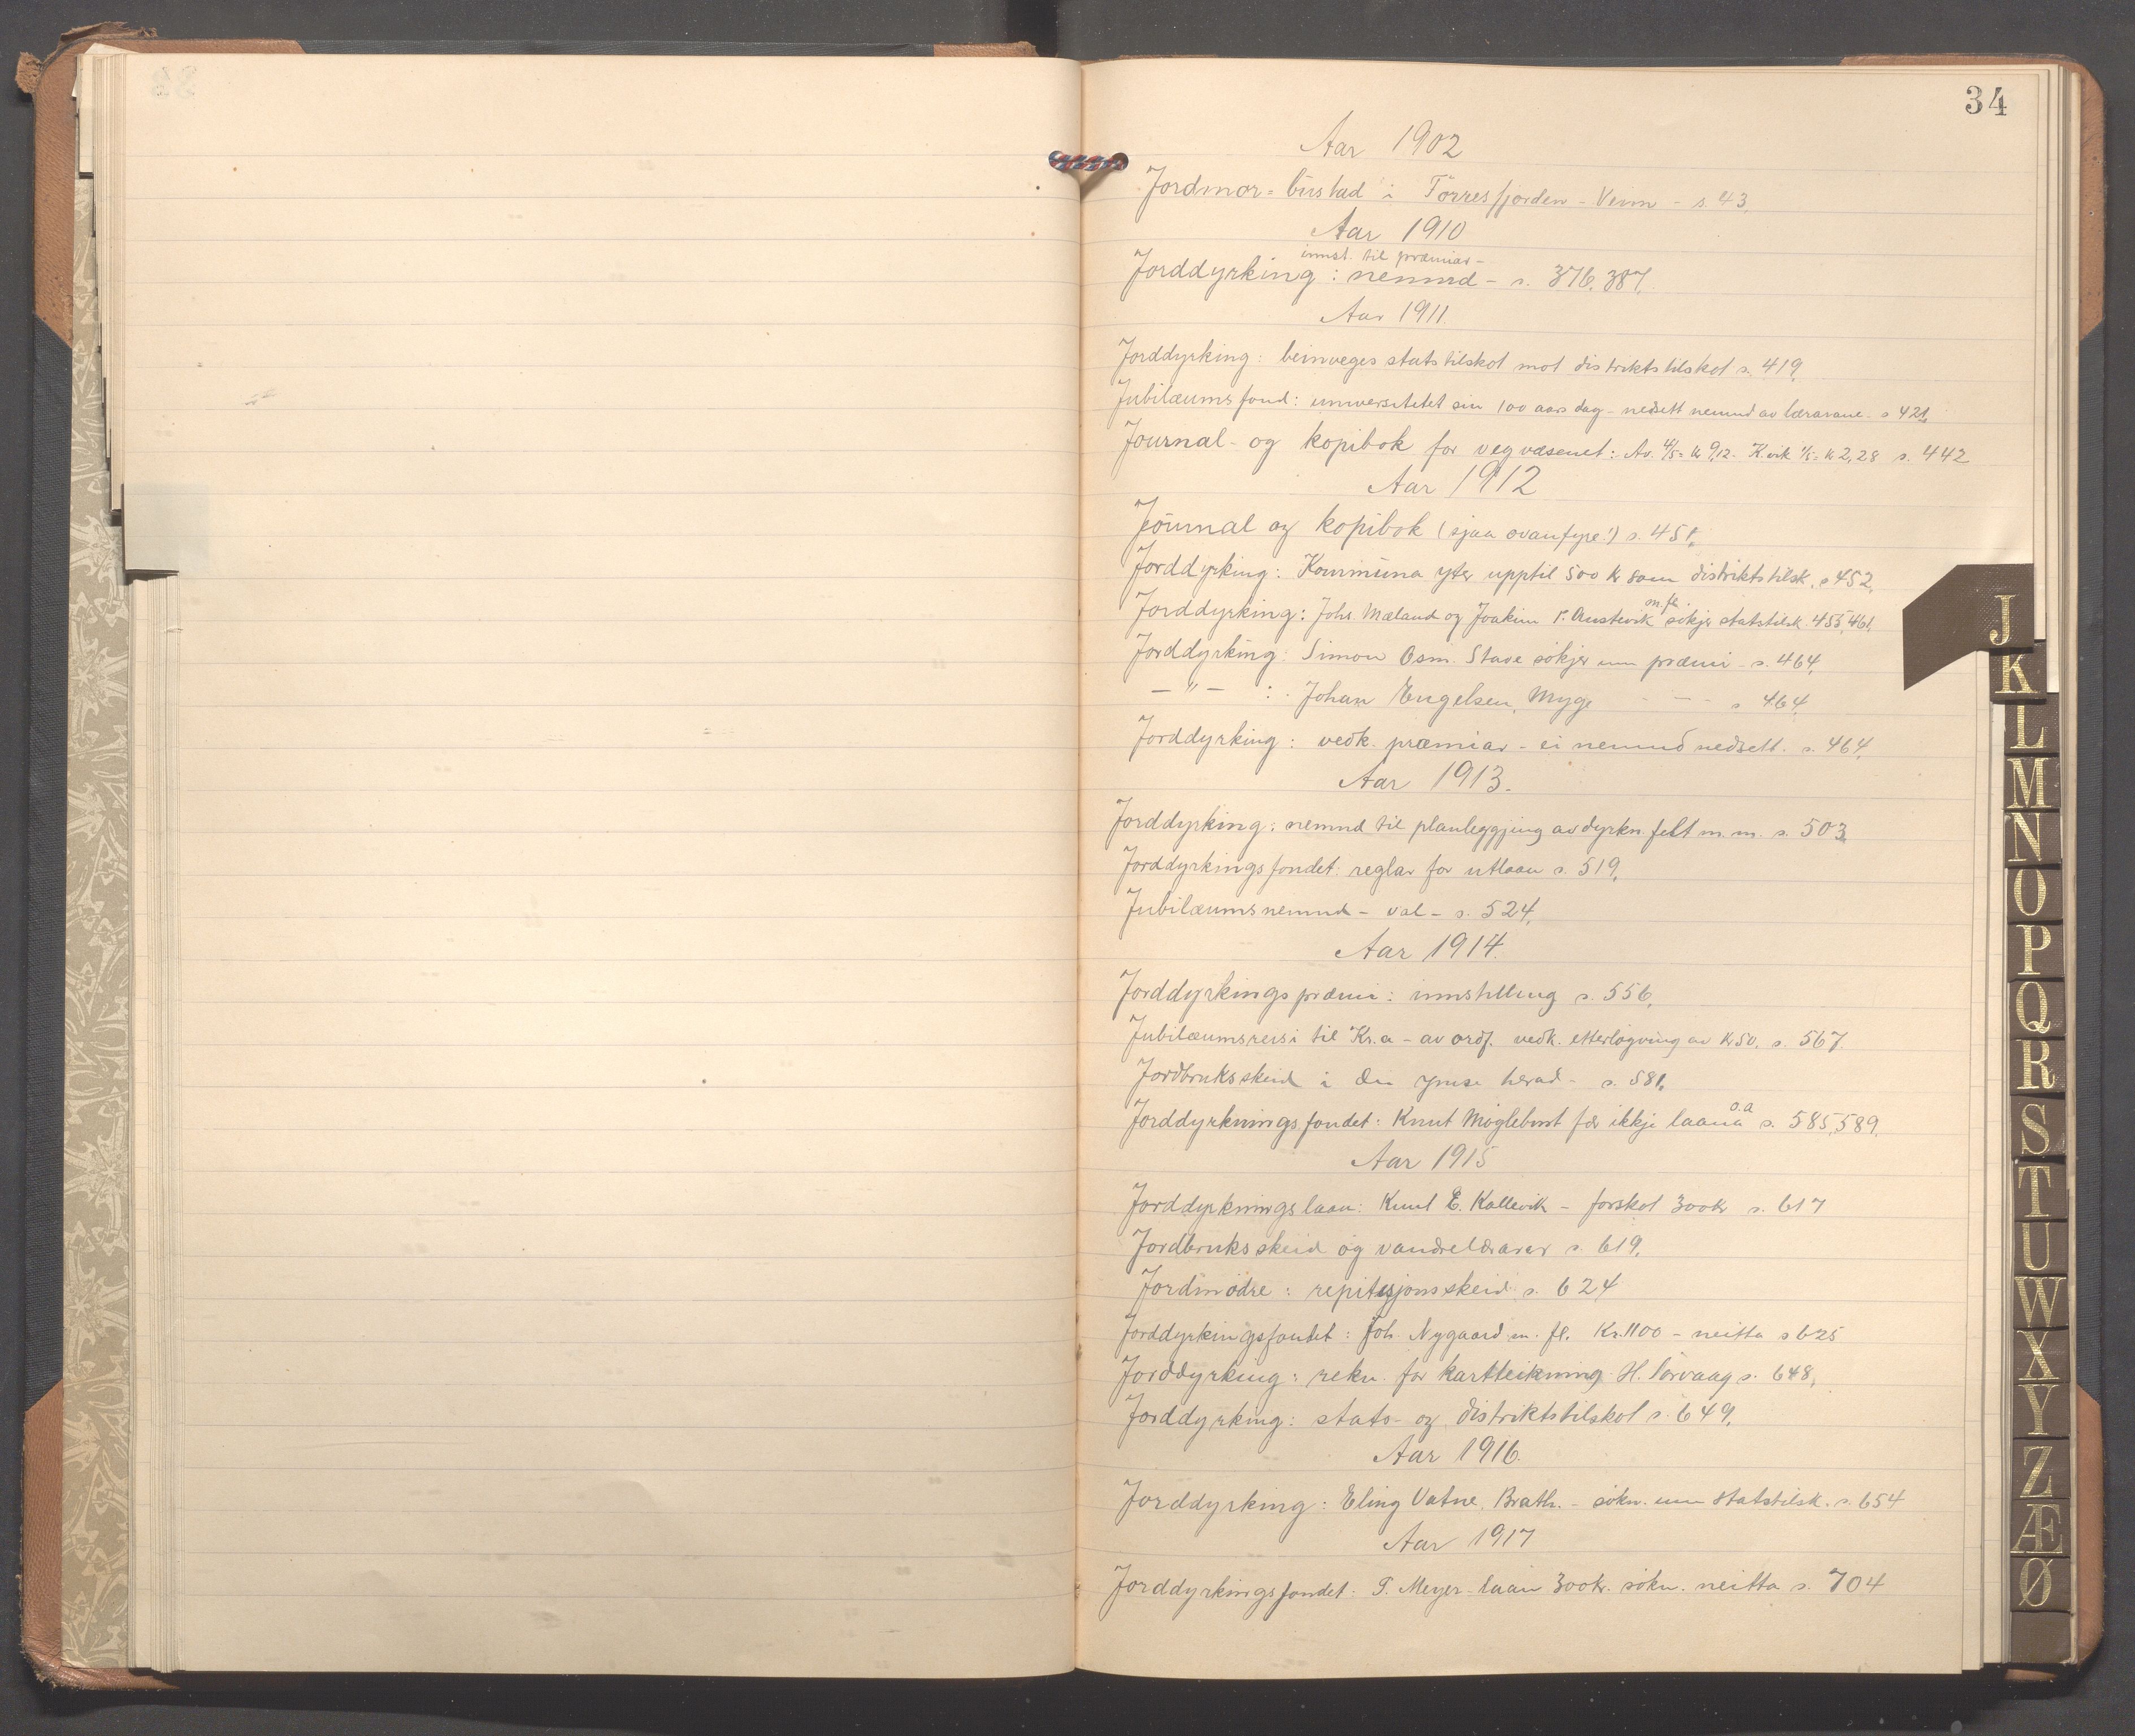 34
Aar 1902
Jordmor-bustad i Förresfjorden - Veim - s. 43.
Aar 1910
innst. til præmiar -
Jorddyrking : nemnd - s. 376, 387.
Aar 1911.
Jorddyrking : beinveges statstilskot mot distriktstilskot s. 419.
Jubilæumsfond : universitetet sin 100 aars dag - nedsett nemnd av lærarane - s 421.
Journal - og kopibok for vegvæsenet : Av. 4/5 = kr 9,12. Kvik 1/5 = kr 2,28 s. 442
Aar 1912
Journal og kopibok (sjaa ovanfyre!) s. 451.
Jorddyrking : Kommuna yter upptil 500 kr som distriktstilsk. s 452.
Jorddyrking : Johs. Mæland og Joakim T. Austevik m. fl. søkjer statstilsk. 455, 461.
Jorddyrking : Simon Osm. Stave søkjer um præmi - s. 464.
— " — : Johan Engelsen, Myge - — - s 464.
Jorddyrking : vedk. præmiar - ei nemnd nedsett. s. 464.
Aar 1913.
Jorddyrking : nemnd til planleggjing av dyrkn.felt m. m. s. 503.
Jorddyrkingsfondet : reglar for utlaan s. 519.
Jubilæumsnemnd - val - s. 524.
Aar 1914.
Jorddyrkingspræmi : innstilling s. 556.
Jubilæumsreisi til Kr.a - av ordf. vedk. etterløgving av kr 50. s. 567.
Jordbruksskeid i dei ymse herad - s. 581.
Jorddyrkningsfondet : Knut Møglebust fær ikkje laana o.a s. 585, 589.
Aar 1915
Jorddyrkningslaan : Knut E. Kallevik - forskot 300 kr s. 617
Jordbruksskeid og vandrelærarar s. 619.
Jordmødre : repitisjonsskeid s. 624
Jorddyrkingsfondet : Joh. Nygaard m. fl. Kr. 1100 - neitta s 625
Jorddyrking : rekn. for kartteikning H. Sørvaag s. 648.
Jorddyrking : stats- og distriktstilskot s. 649.
Aar 1916.
Jorddyrking : Eling Vatne, Brath. - søkn. um statstilsk. s. 654
Aar 1917
Jorddyrkingsfondet : T. Meyer - laan 300 kr. søkn. neitta s. 704
J
K
L
M
N
O
P
Q
R
S
T
U
W
X
Y
Z
Æ
Ø